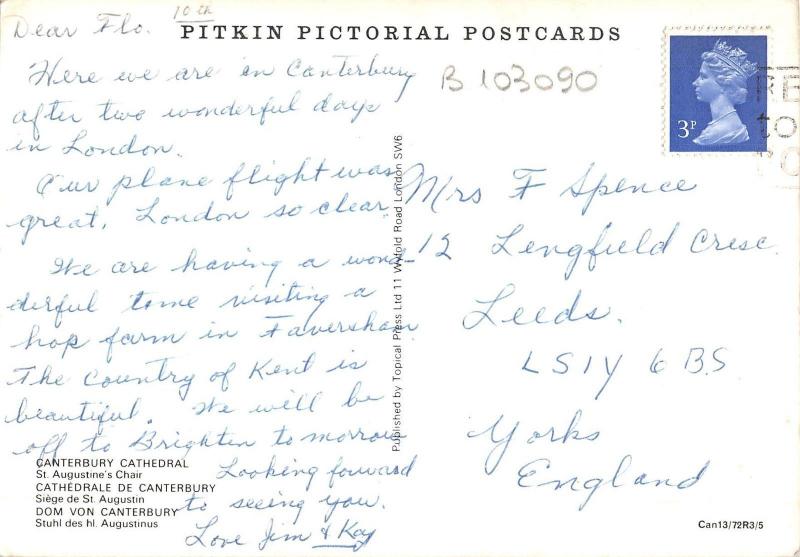 10th
PITKIN PICTORIAL POSTCARDS
Dear Flo.
Here we are in Canterbury
after two wonderful days
in London.
Our plane flight was
great. London so clear.
We are having a won-
derful time visiting a
hop farm in Faversham
The country of Kent is
beautiful. We will be
off to Brighten tomorrow
Looking forward
to seeing you.
Love Jim & Kay
CANTERBURY CATHEDRAL
St. Augustine's Chair
CATHÉDRALE DE CANTERBURY
Siège de St. Augustin
DOM VON CANTERBURY
Stuhl des hl. Augustinus
Published by Topical Press Ltd 11 Wyfold Road London SW6
B 103090
3P
RE
to
Mrs F Spence
12 Lengfield Cresc.
Leeds.
LS1Y 6BS
Yorks
England
Can13/72R3/5